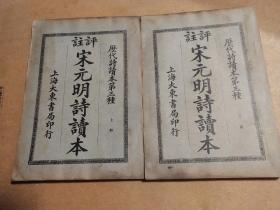 歷代詩讀本第三種
評註
宋元明詩讀本
上海大東書局印行
歷代詩讀本第三種
評註
宋元明詩讀本
上海大東書局印行